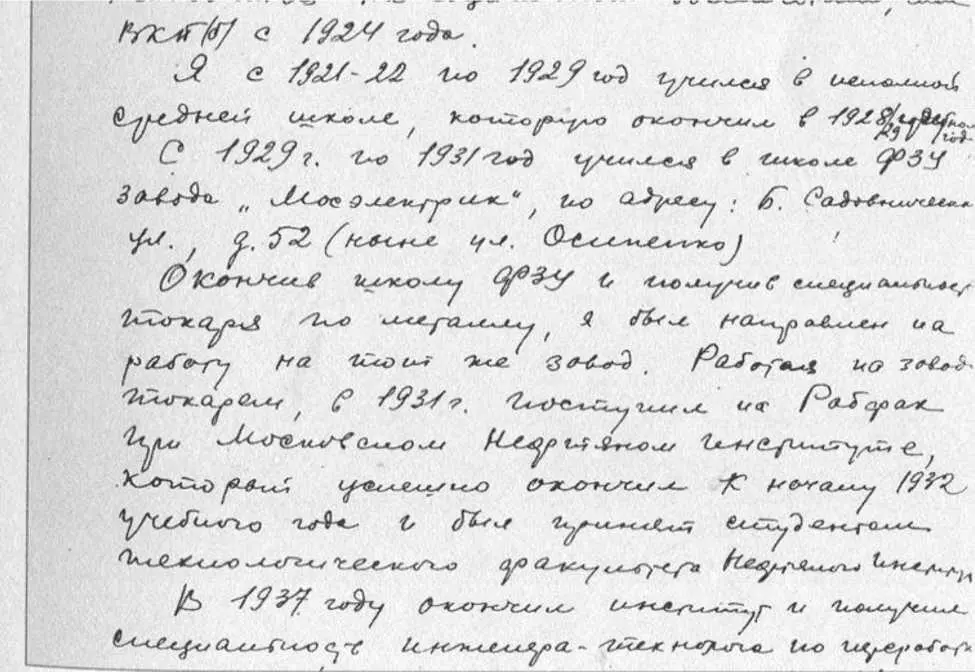 ВКП(б) с 1924 года.
Я с 1921-22 по 1929 год учился в неполной
средней школе, которую окончил в 1928/29 году.
С 1929 г. по 1931 год учился в школе ФЗУ
завода „Мосэлектрик“, по адресу: Б. Садовническ
ул., д. 52 (ныне ул. Осипенко)
Окончив школу ФЗУ и получив специальност
токаря по металлу, я был направлен на
работу на тот же завод. Работая на завод
токарем, в 1931 г. поступил на Рабфак
при Московском Нефтяном институте,
который успешно окончил к началу 1932
учебного года и был принят студентом
технологического факультета Нефтяного Институ
В 1937 году окончил институт и получил
специальность инженера-технолога по переработ